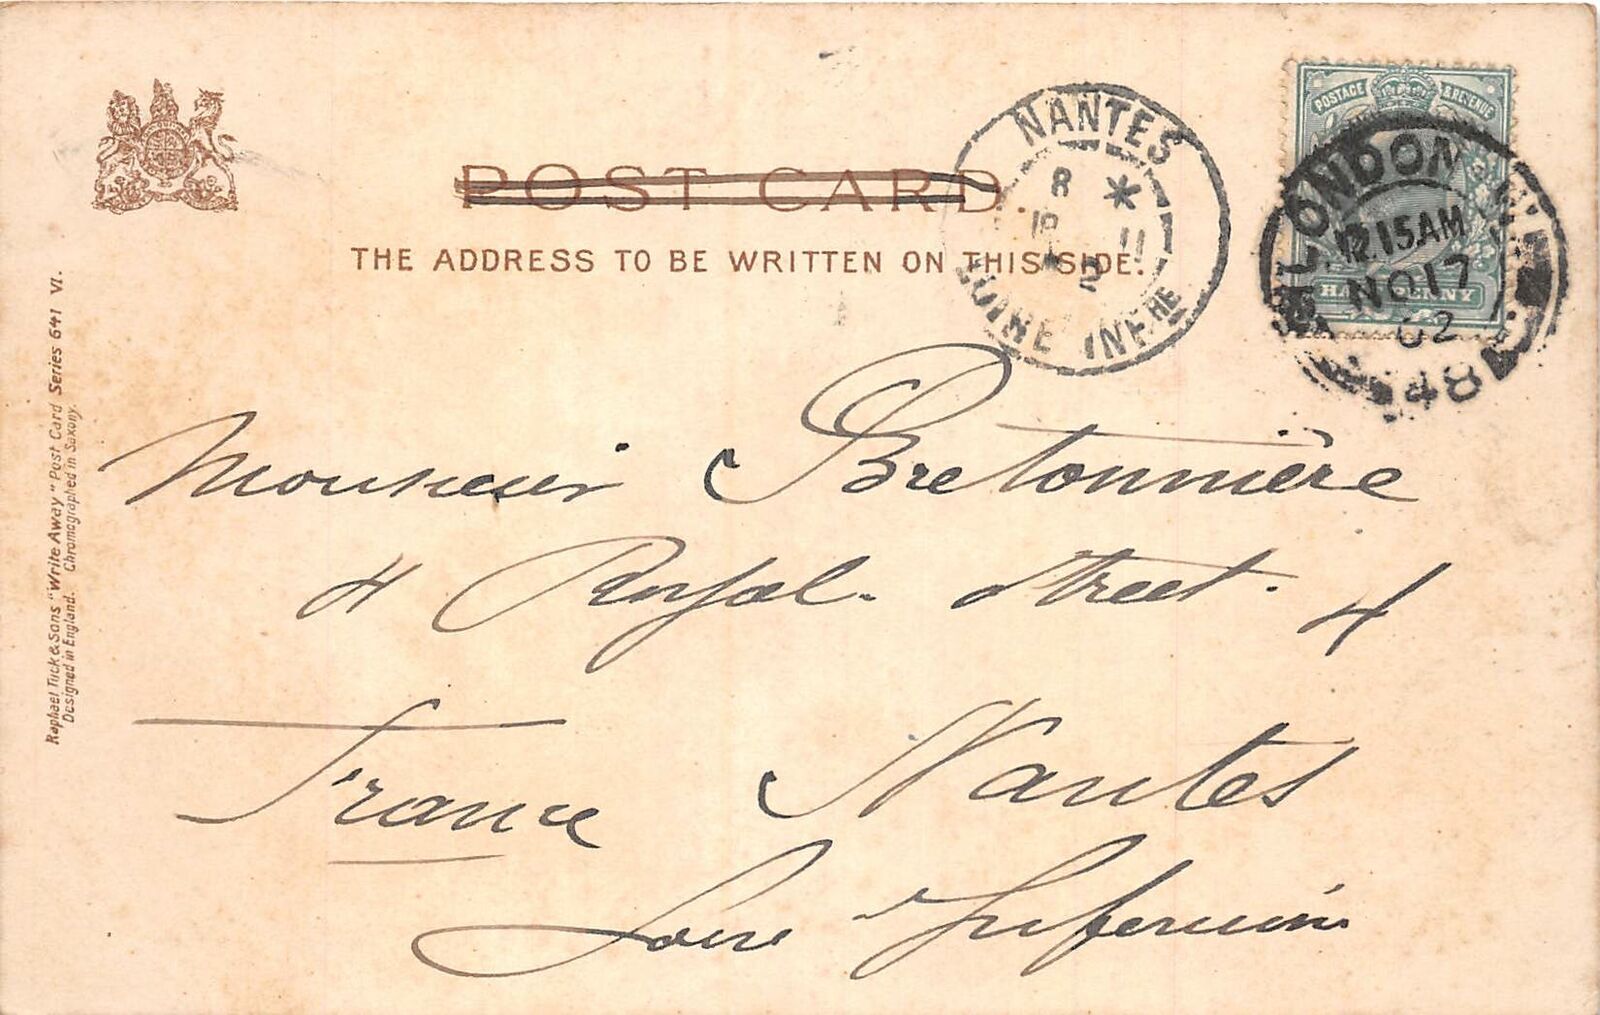 POST CARD.
THE ADDRESS TO BE WRITTEN ON THIS SIDE.
NANTES
8 *
18 11
2
LOIRE INFRE
POSTAGE & REVENUE
HALFPENNY
LONDON
12.15 AM
NO 17
02
48
Monsieur Bretonnière
4 Royal. Street. 4
Nantes
France
Loire Inferieure
Raphael Tuck & Sons "Write Away" Post Card Series 641 VI.
Designed in England. Chromographed in Saxony.